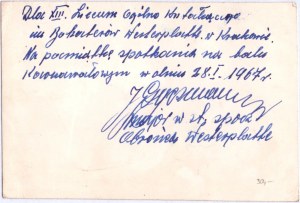 Dla XIII. Liceum Ogólno Kształcącego
im Bohaterów Westerplatte w Krakowie
Na pamiątkę spotkania na balu
Karnawałowym w dniu 28.I.1967 r.
w st. spocz
Obrońca Westerplatte